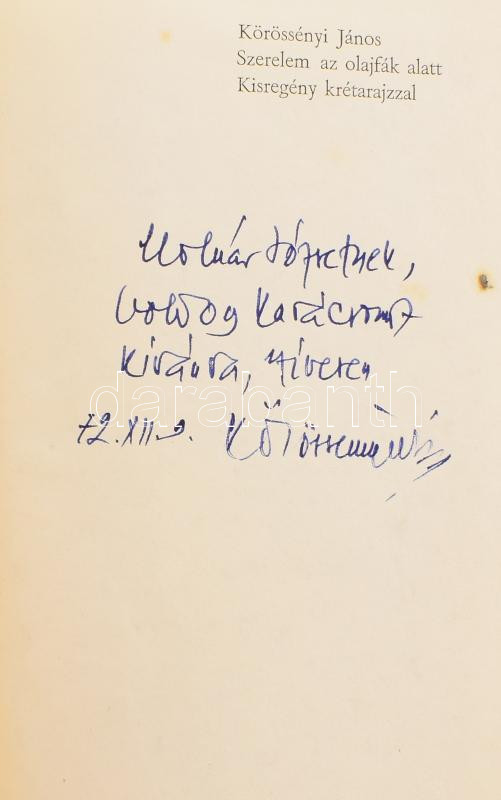 Körössényi János
Szerelem az olajfák alatt
Kisregény krétarajzzal
Molnár Józsefnek,
boldog karácsonyt
kívánva, szívesen
darabanth
72.XII.9. Körössényi